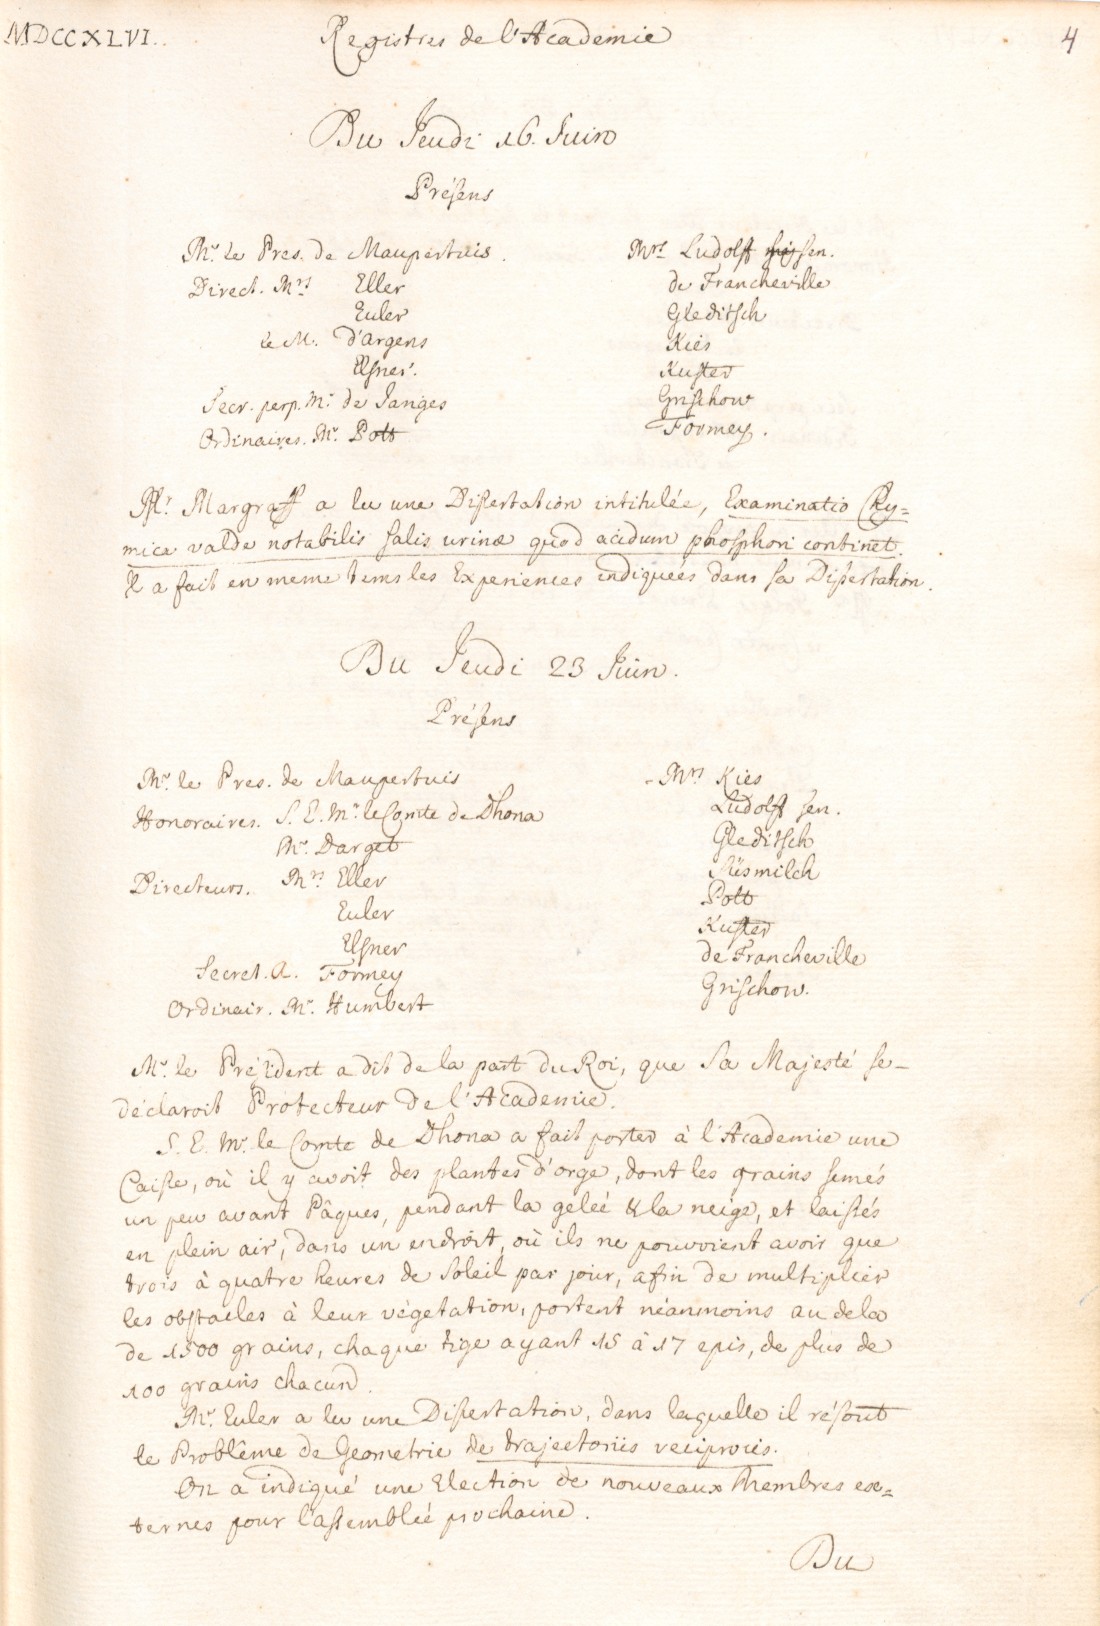 MDCCXLVI.. Registres de l'Academie 4
Du Jeudi 16. Juin
Présens
Mr. le Pres. de Maupertuis.
Direct. Mrs Eller
Euler
le M. d'Argens
Elsner.
Secr. perp. Mr. de Jariges
Ordinaires. Mr. Pott
Mrs Ludolff sen.
de Francheville
Gleditsch
Kies
Kuster
Grischow
Formey.
Mr. Margraff a lu une Dissertation intitulée, Examinatio Chy=
mica valde notabilis salis urinæ quod acidum phosphori continet.
Il a fait en meme tems les Experiences indiqueés dans sa Dissertation.
Du Jeudi 23 Juin.
Présens
Mr. le Pres. de Maupertuis
Honoraires. S. E. Mr. le Comte de Dhona
Mr. Darget
Directeurs. Mrs Eller
Euler
Elsner
Secret. A. Formey
Ordinair. Mr. Humbert
Mrs Kies
Ludolff sen.
Gleditsch
Süsmilch
Pott
Kuster
de Francheville
Grischow.
Mr. le Président a dit de la part du Roi, que Sa Majesté se
déclaroit Protecteur de l'Academie.
S. E. Mr. le Comte de Dhona a fait porter à l'Academie une
Caisse, où il y avoit des plantes d'orge, dont les grains semés
un peu avant Pâques, pendant la geleé & la neige, et laissés
en plein air, dans un endroit, où ils ne pouvoient avoir que
trois à quatre heures de Soleil par jour, afin de multiplier
les obstacles à leur végetation, portent néanmoins au dela
de 1500 grains, chaque tige ayant 15 à 17 epis, de plus de
100 grains chacun.
Mr. Euler a lu une Dissertation, dans laquelle il résout
le Problême de Geometrie de trajectoriis reciprocis.
On a indiqué une Election de nouveaux Membres ex=
ternes pour l'assembleé prochaine.
Du